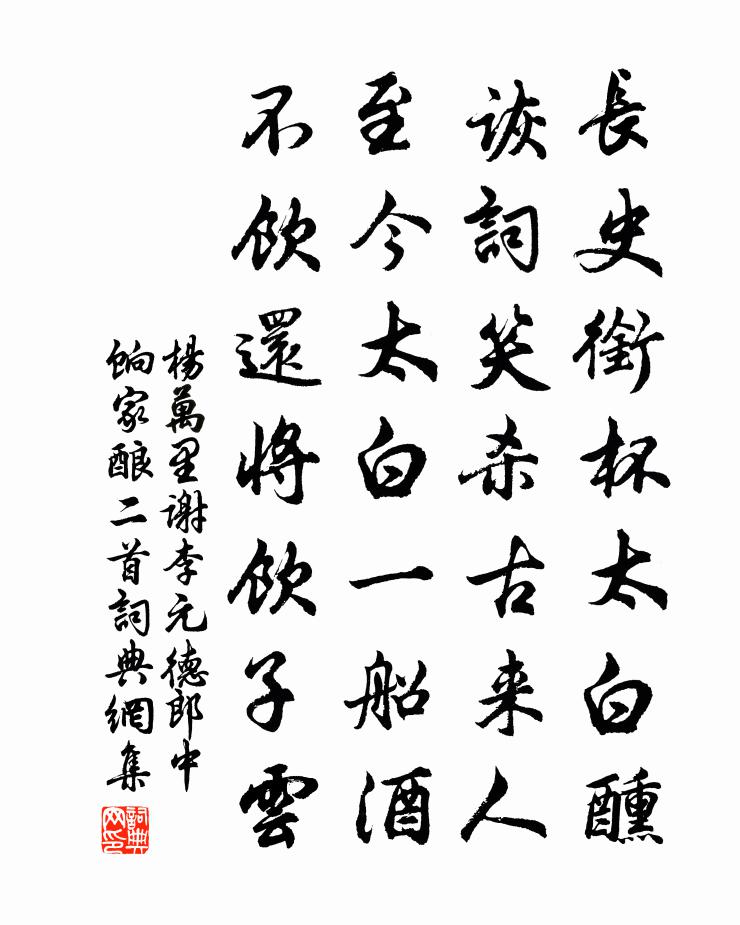 長史銜杯太白醺
詼詞笑杀古来人
至今太白一船酒
不飲還將飲子雲
楊萬里謝李元德郎中
餉家酿二首詞典網集
詞典网印